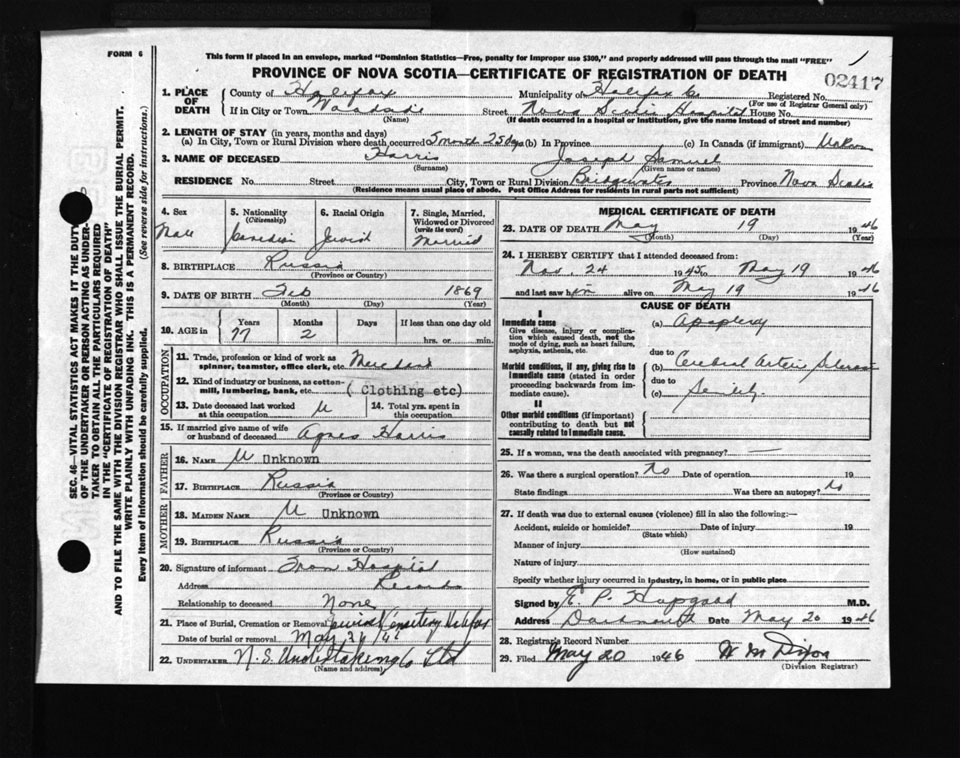 FORM 6
This form if placed in an envelope, marked "Dominion Statistics—Free, penalty for improper use $300," and properly addressed will pass through the mail "FREE"
1
PROVINCE OF NOVA SCOTIA—CERTIFICATE OF REGISTRATION OF DEATH
02417
1. PLACE OF DEATH
County of Halifax Municipality of Halifax Co Registered No.
(For use of Registrar General only)
If in City or Town Street Nova Scotia Hospital House No.
(Name) (If death occurred in a hospital or institution, give the name instead of street and number)
2. LENGTH OF STAY (in years, months and days)
(a) In City, Town or Rural Division where death occurred 5 month 25 days (b) In Province (c) In Canada (if immigrant)
3. NAME OF DECEASED Harris Joseph Samuel
(Surname) (Given name or names)
RESIDENCE No. Street City, Town or Rural Division Bridgewater Province Nova Scotia
(Residence means usual place of abode. Post Office Address for residents in rural parts not sufficient)
4. Sex
Male
5. Nationality
(Citizenship)
Canadian
6. Racial Origin
Jewish
7. Single, Married, Widowed or Divorced
(write the word)
Married
8. BIRTHPLACE Russia
(Province or Country)
9. DATE OF BIRTH Feb 1869
(Month) (Day) (Year)
10. AGE in Years Months Days If less than one day old
77 2 hrs. or min.
OCCUPATION
11. Trade, profession or kind of work as spinner, teamster, office clerk, etc. Merchant
12. Kind of industry or business, as cotton-mill, lumbering, bank, etc. ( Clothing etc)
13. Date deceased last worked at this occupation U
14. Total yrs. spent in this occupation
15. If married give name of wife or husband of deceased Agnes Harris
FATHER
16. NAME U Unknown
17. BIRTHPLACE Russia
(Province or Country)
MOTHER
18. MAIDEN NAME U Unknown
19. BIRTHPLACE Russia
(Province or Country)
20. Signature of informant From Hospital
Address Records
Relationship to deceased None
21. Place of Burial, Cremation or Removal Jewish Cemetery Halifax
Date of burial or removal May
22. UNDERTAKER N.S. Undertaking Co Ltd
(Name and address)
MEDICAL CERTIFICATE OF DEATH
23. DATE OF DEATH May 19 1946
(Month) (Day) (Year)
24. I HEREBY CERTIFY that I attended deceased from:
Nov. 24 1945 to May 19 1946
and last saw him alive on May 19 1946
CAUSE OF DEATH
I
Immediate cause
Give disease, injury or complication which caused death, not the mode of dying, such as heart failure, asphyxia, asthenia, etc.
(a) Apoplexy
due to
Morbid conditions, if any, giving rise to immediate cause (stated in order proceeding backwards from immediate cause).
(b) Cerebral Arterio Sclerosis
due to
(c) Senility.
II
Other morbid conditions (if important) contributing to death but not causally related to immediate cause.
25. If a woman, was the death associated with pregnancy? —
26. Was there a surgical operation? No Date of operation 19
State findings Was there an autopsy? No
27. If death was due to external causes (violence) fill in also the following:—
Accident, suicide or homicide? Date of injury 19
(State which)
Manner of injury
(How sustained)
Nature of injury
Specify whether injury occurred in industry, in home, or in public place
Signed by E. P. Hapgood M.D.
Address Dartmouth Date May 20 1946
28. Registrar's Record Number
29. Filed May 20 1946 W M Dixon
(Division Registrar)
SEC. 46—VITAL STATISTICS ACT MAKES IT THE DUTY
OF THE UNDERTAKER OR PERSON ACTING AS UNDER-
TAKER TO OBTAIN ALL THE PARTICULARS REQUIRED
IN THE "CERTIFICATE OF REGISTRATION OF DEATH"
AND TO FILE THE SAME WITH THE DIVISION REGISTRAR WHO SHALL ISSUE THE BURIAL PERMIT.
WRITE PLAINLY WITH UNFADING INK. THIS IS A PERMANENT RECORD.
Every item of information should be carefully supplied. (See reverse side for instructions.)